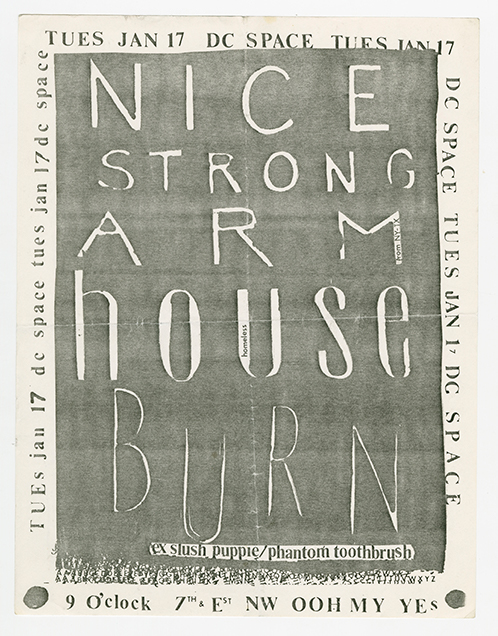 TUES JAN 17 DC SPACE TUES JAN 17
TUEs jan 17 dc space tues jan 17 dc space
DC SPACE TUES JAN 17 DC SPACE
NICE
STRONG
ARM
from NY-TX
house
homeless
BURN
ex slush puppie/phantom toothbrush
9 O'clock 7TH & EST NW OOH MY YEs